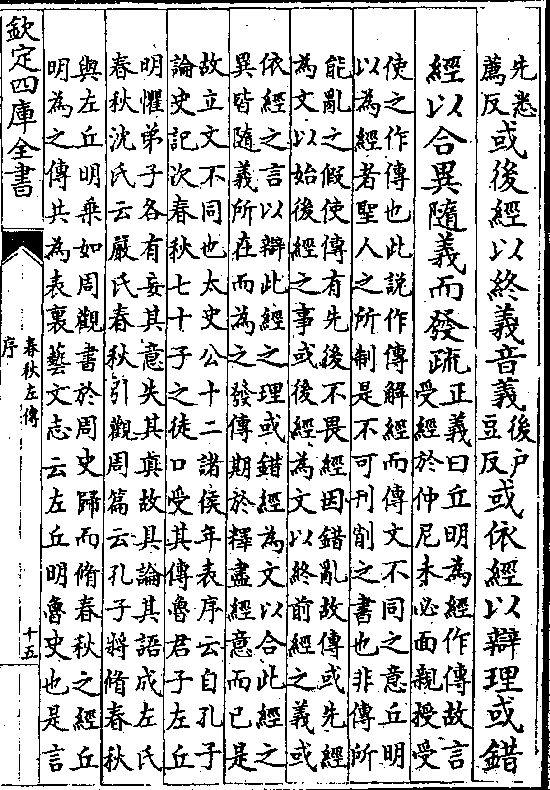 先悉
薦反
或後經以終義音義
後戶
豆反
或依經以辯理或錯
經以合異隨義而發疏
正義曰丘明為經作傳故言
受經於仲尼未必面親授受
使之作傳也此說作傳解經而傳文不同之意丘明
以為經者聖人之所制是不可刊削之書也非傳所
能亂之假使傳有先後不畏經因錯亂故傳或先經
為文以始後經之事或後經為文以終前經之義或
依經之言以辯此經之理或錯經為文以合此經之
異皆隨義所在而為之發傳期於釋盡經意而已是
故立文不同也太史公十二諸侯年表序云自孔子
論史記次春秋七十子之徒口受其傳魯君子左丘
明懼弟子各有妄其意失其真故具論其語成左氏
春秋沈氏云嚴氏春秋引觀周篇云孔子將脩春秋
與左丘明乘如周觀書於周史歸而脩春秋之經丘
明為之傳共為表裏藝文志云左丘明魯史也是言
欽定四庫全書
春秋左傳
序
十五